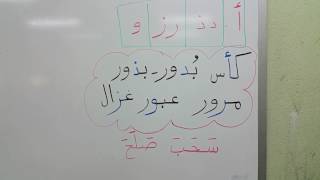 أ د ذ ر ز و
كأس بُدور - بذور
مرور عبور غزال
سَحَبَ صَلُحَ